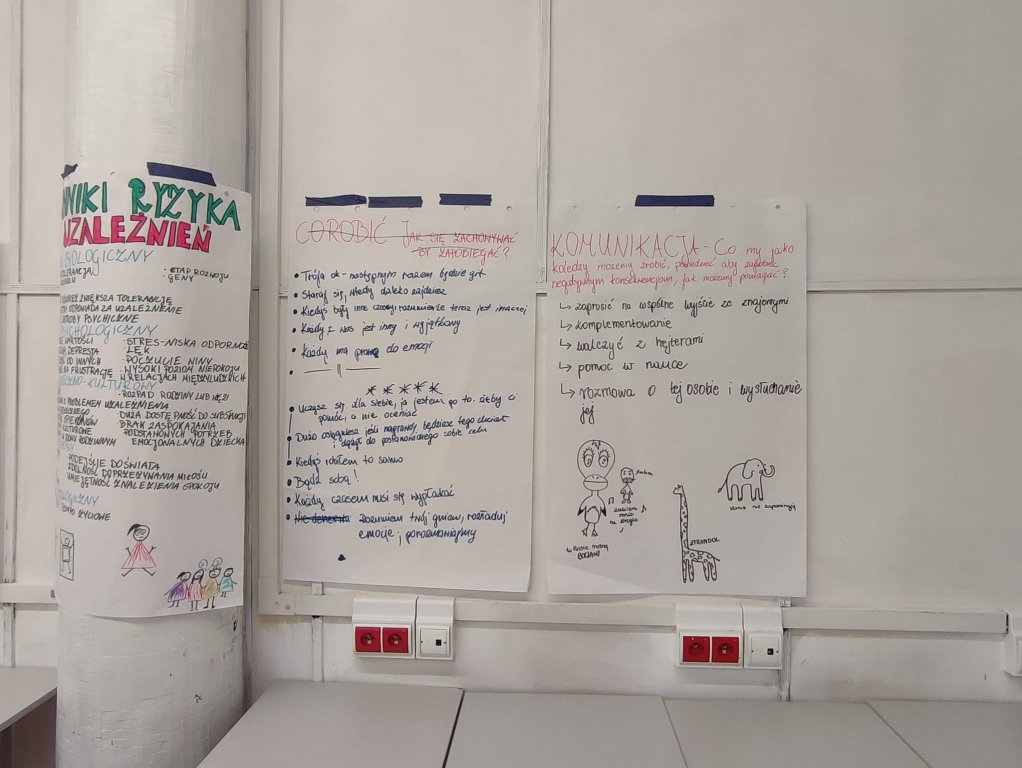 NNIKI RYZYKA
UZALEŻNIEŃ
BIOLOGICZNY
: ETAP ROZWOJU
GENY
ZWIĘKSZA TOLERANCJĘ
ODPOWIADA ZA UZALEŻNIENIE
PSYCHICZNE
PSYCHOLOGICZNY
WARTOŚCI : STRES-NISKA ODPORNOŚ
DEPRESJA : LĘK
OD INNYCH : POCZUCIE WINY
NA FRUSTRACJE : WYSOKI POZIOM NIEPOKOJU
W RELACJACH MIĘDZYLUDZKICH
KULTUROWY
- ROZPAD RODZINY LUB WIĘZI
Z PROBLEMEM UZALEŻNIENIA
DUŻA DOSTĘPNOŚĆ DO SUBSTANCJI
OPIEKUNÓW BRAK ZASPOKAJANIA
KULTUROWE PODSTAWOWYCH POTRZEB
EMOCJONALNYCH DZIECKA
PODEJŚCIE DO ŚWIATA
ZDOLNOŚĆ DO PRZEŻYWANIA MIŁOŚCI
UMIEJĘTNOŚĆ ZNALEZIENIA SPOKOJU
CO ROBIĆ JAK SIĘ ZACHOWYWAĆ
BY ZAPOBIEGAĆ?
Trója ok - następnym razem będzie git
Staraj się, wtedy daleko zajdziesz
Kiedyś były inne czasy, rozumiem że teraz jest inaczej
Każdy z nas jest inny i wyjątkowy
Każdy ma prawo do emocji
— || —
Uczysz się dla siebie, ja jestem po to, żeby ci
pomóc, a nie oceniać
Dużo osiągniesz jeśli naprawdę będziesz tego chciał
i dążył do postanowionego sobie celu
Kiedyś robiłem to samo
Bądź sobą!
Każdy czasem musi się wypłakać
Nie denerwuj Rozumiem twój gniew, rozładuj
emocje i porozmawiajmy
KOMUNIKACJA - Co my jako
koledzy możemy zrobić, powiedzieć aby zapobiec
negatywnym konsekwencjom, jak możemy pomagać?
↳ zaprosić na wspólne wyjście ze znajomymi
↳ komplementowanie
↳ walczyć z hejterami
↳ pomoc w nauce
↳ rozmowa o tej osobie i wysłuchanie
jej
zabierz
mnie
na
słonie nie zapominają
STRANDOL
w Polsce rosną
BOCIANI